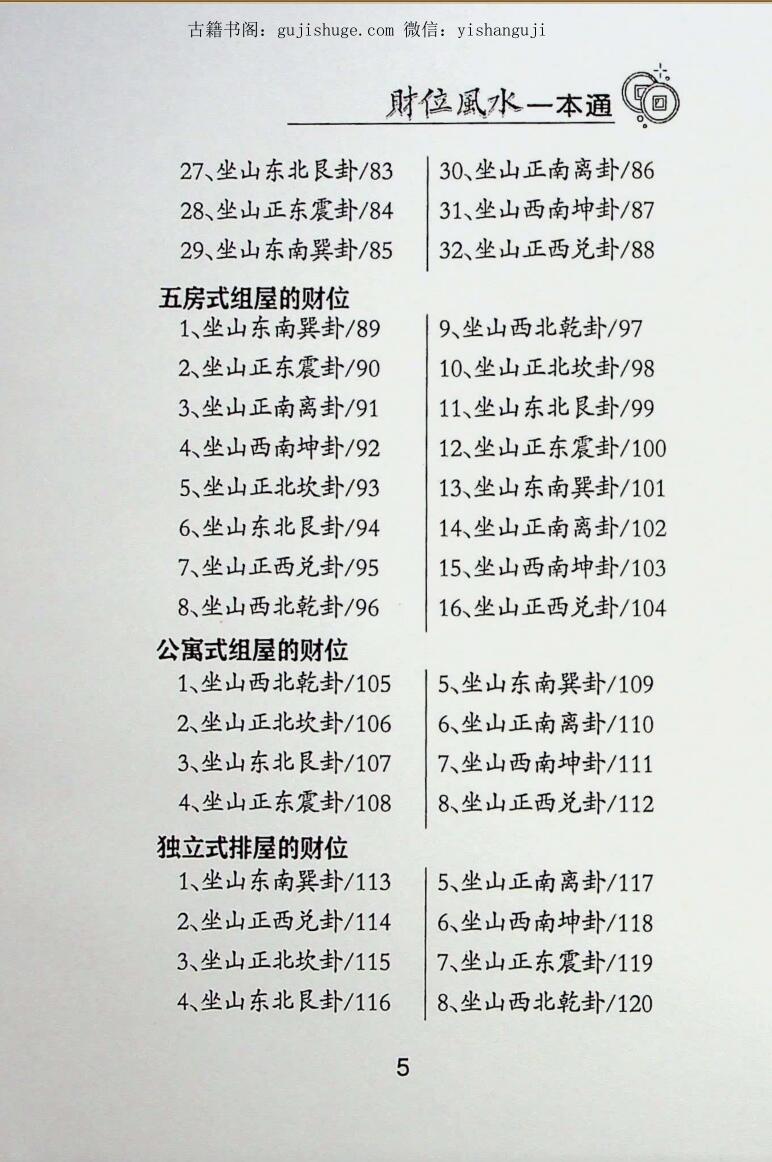 古籍书阁：gujishuge.com 微信：yishanguji
財位風水一本通
27、坐山东北艮卦/83
28、坐山正东震卦/84
29、坐山东南巽卦/85
30、坐山正南离卦/86
31、坐山西南坤卦/87
32、坐山正西兑卦/88
五房式组屋的财位
1、坐山东南巽卦/89
2、坐山正东震卦/90
3、坐山正南离卦/91
4、坐山西南坤卦/92
5、坐山正北坎卦/93
6、坐山东北艮卦/94
7、坐山正西兑卦/95
8、坐山西北乾卦/96
9、坐山西北乾卦/97
10、坐山正北坎卦/98
11、坐山东北艮卦/99
12、坐山正东震卦/100
13、坐山东南巽卦/101
14、坐山正南离卦/102
15、坐山西南坤卦/103
16、坐山正西兑卦/104
公寓式组屋的财位
1、坐山西北乾卦/105
2、坐山正北坎卦/106
3、坐山东北艮卦/107
4、坐山正东震卦/108
5、坐山东南巽卦/109
6、坐山正南离卦/110
7、坐山西南坤卦/111
8、坐山正西兑卦/112
独立式排屋的财位
1、坐山东南巽卦/113
2、坐山正西兑卦/114
3、坐山正北坎卦/115
4、坐山东北艮卦/116
5、坐山正南离卦/117
6、坐山西南坤卦/118
7、坐山正东震卦/119
8、坐山西北乾卦/120
5